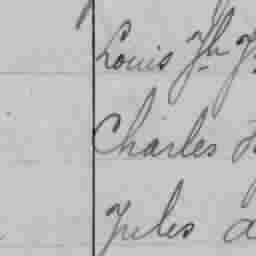 Louis Jh
Charles
Jules